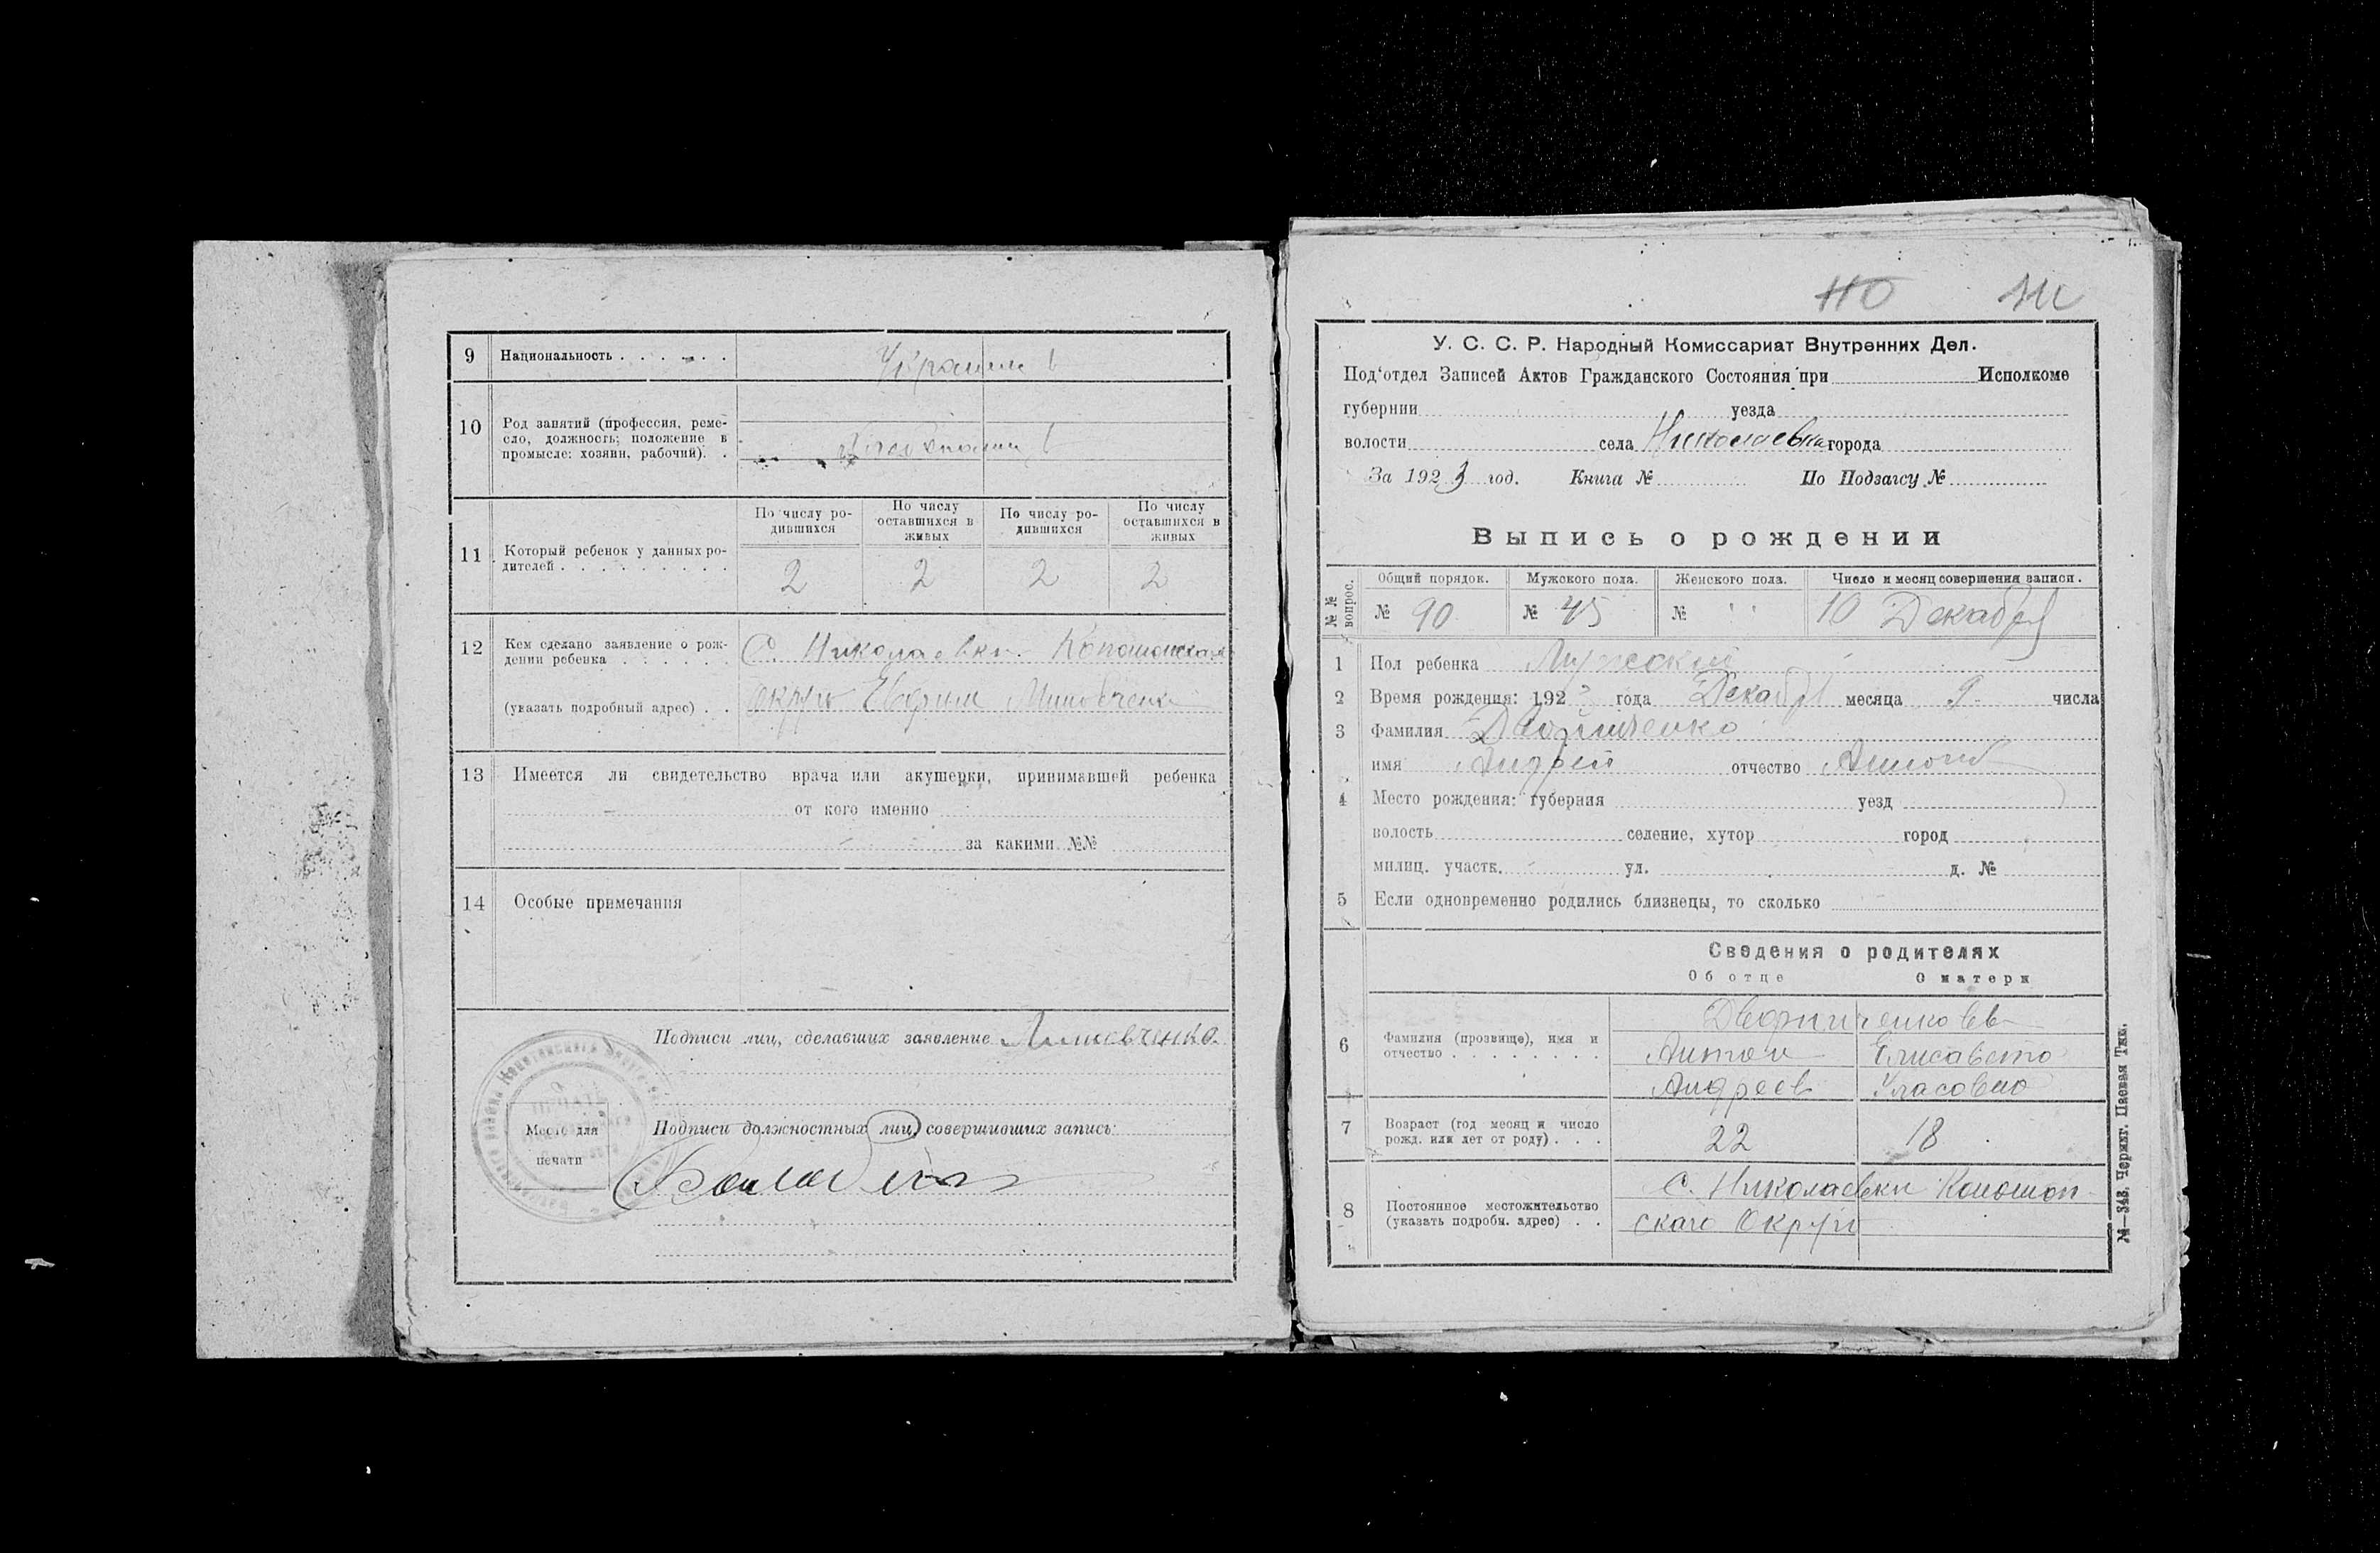 9 Национальность . . . . . .
10 Род занятий (профессия, реме-
сло, должность; положение в
промысле: хозяин, рабочий). .
По числу ро-
дившихся
По числу
оставшихся в
живых
По числу ро-
дившихся
По числу
оставшихся в
живых
11 Который ребенок у данных ро-
дителей . . . . . . . . .
2 2 2 2
12 Кем сделано заявление о рож-
дении ребенка . . . . . .
С. Николаевки
(указать подробный адрес) . .
округа Евфим
13 Имеется ли свидетельство врача или акушерки, принимавшей ребенка
от кого именно
за какими №№
14 Особые примечания
Подписи лиц, сделавших заявление
Место для
печати
Подписи должностных лиц, совершивших запись:
110
У. С. С. Р. Народный Комиссариат Внутренних Дел.
Под‘отдел Записей Актов Гражданского Состояния при Исполкоме
губернии уезда
волости села Николаевки города
За 1923 год. Книга № По Подзагсу №
Выпись о рождении
№№ вопрос.
Общий порядок. Мужского пола. Женского пола. Число и месяц совершения записи.
№ 90 № 45 № " 10 Декабря
1 Пол ребенка Мужской
2 Время рождения: 192 года Декабря месяца 9 числа
3 Фамилия
имя Андрей отчество
4 Место рождения: губерния уезд
волость селение, хутор город
милиц. участк. ул. д. №
5 Если одновременно родились близнецы, то сколько
Сведения о родителях
Об отце О матери
6 Фамилия (прозвище), имя и
отчество . . . . . . . .
Антон Елисавета
Андреев Уласовна
7 Возраст (год месяц и число
рожд. или лет от роду) . . .
22 18
8 Постоянное местожительство
(указать подробн. адрес) . .
С. Николаевки Коношоп-
скаго Округа
№—343. Черниг. Цаевая Тип.